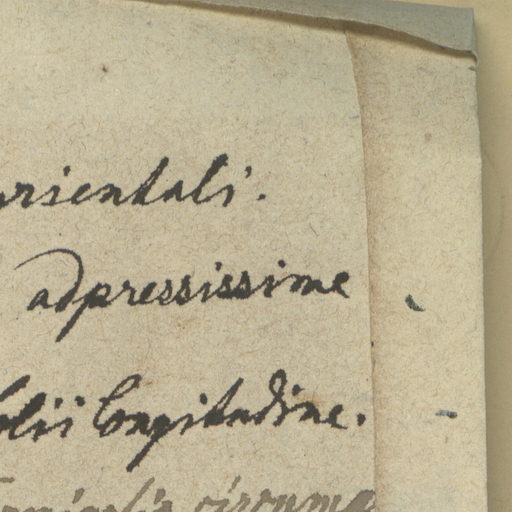 orientali.
adpressissime
folii longitudine.